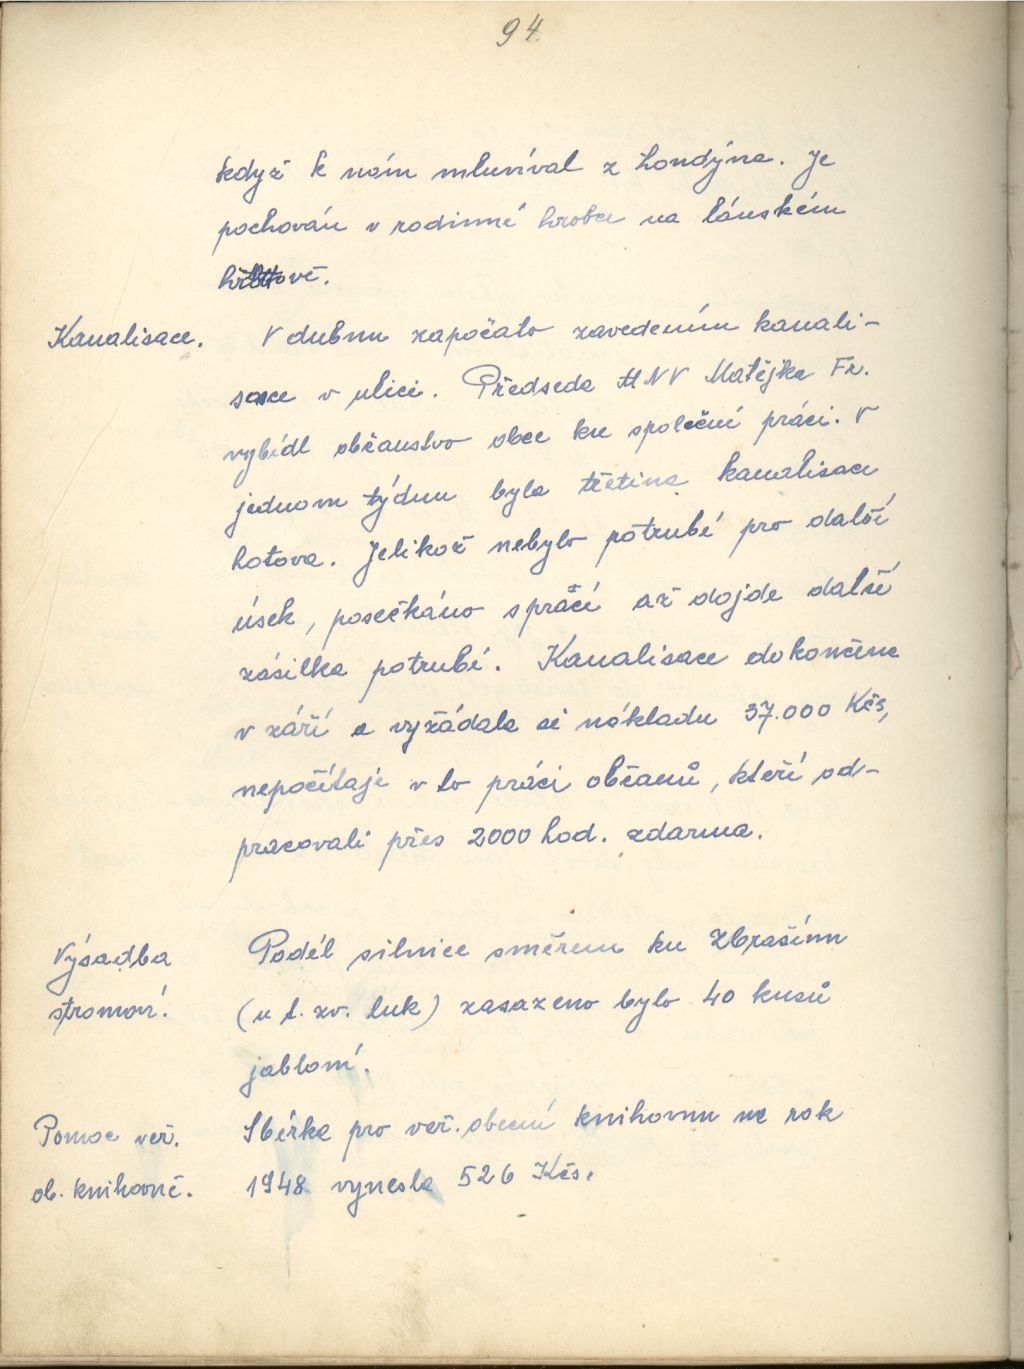 94
když k nám mluvíval z Londýna. Je
pochován v rodinné hrobce na lánském
hřbitově.
Kanalisace. V dubnu započato zavedením kanali-
sace v ulici. Předseda MNV Matějka Fr.
vybídl občanstvo obce ku společné práci. V
jednom týdnu byla třetina kanalisace
hotova. Jelikož nebylo potrubí pro další
úsek, posečkáno s prací až dojde další
zásilka potrubí. Kanalisace dokončena
v září a vyžádala si nákladu 37.000 Kčs,
nepočítaje v to práci občanů, kteří od-
pracovali přes 2000 hod. zdarma.
Výsadba Podél silnice směrem ku Zbrašínu
stromoví. (u t. zv. luk) zasazeno bylo 40 kusů
jabloní.
Pomoc veř. Sbírka pro veř. obecní knihovnu na rok
ob. knihovně. 1948 vynesla 526 Kčs.